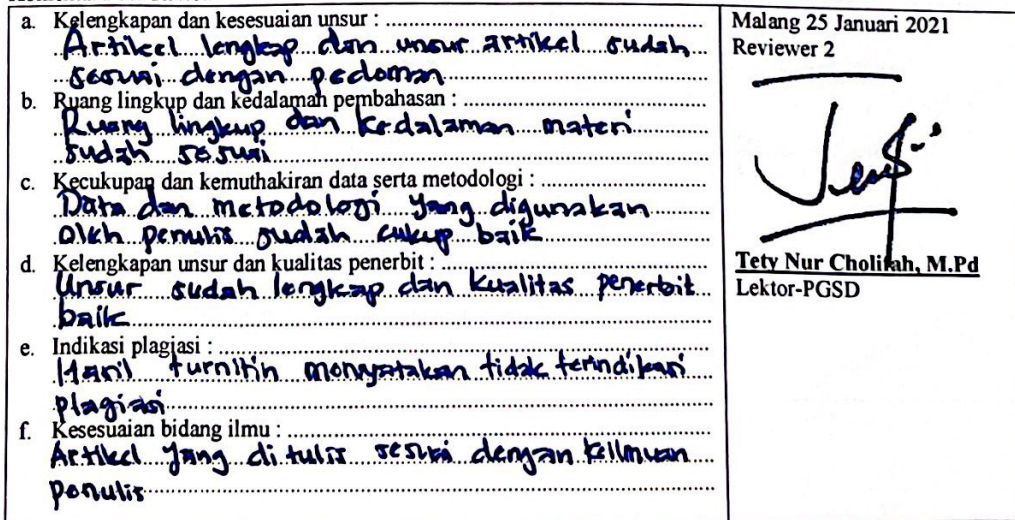 a. Kelengkapan dan kesesuaian unsur :
Artikel lengkap dan unsur artikel sudah
sesuai dengan pedoman
b. Ruang lingkup dan kedalamah pembahasan :
Ruang lingkup dan kedalaman materi
sudah sesuai
c. Kecukupan dan kemuthakiran data serta metodologi :
Data dan metodologi yang digunakan
oleh penulis sudah cukup baik
d. Kelengkapan unsur dan kualitas penerbit :
Unsur sudah lengkap dan kualitas penerbit
baik
e. Indikasi plagiasi :
Hasil turnitin menyatakan tidak terindikasi
plagiasi
f. Kesesuaian bidang ilmu :
Artikel yang di tulis sesuai dengan keilmuan
penulis
Malang 25 Januari 2021
Reviewer 2
Tety Nur Cholifah, M.Pd
Lektor-PGSD